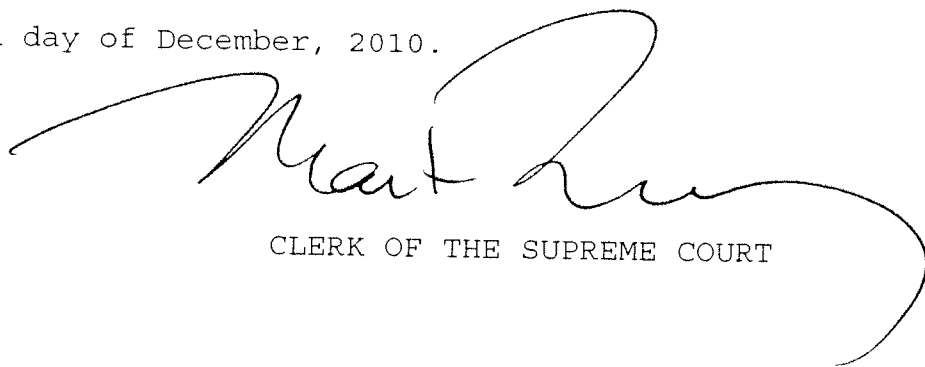 day of December, 2010.
CLERK OF THE SUPREME COURT